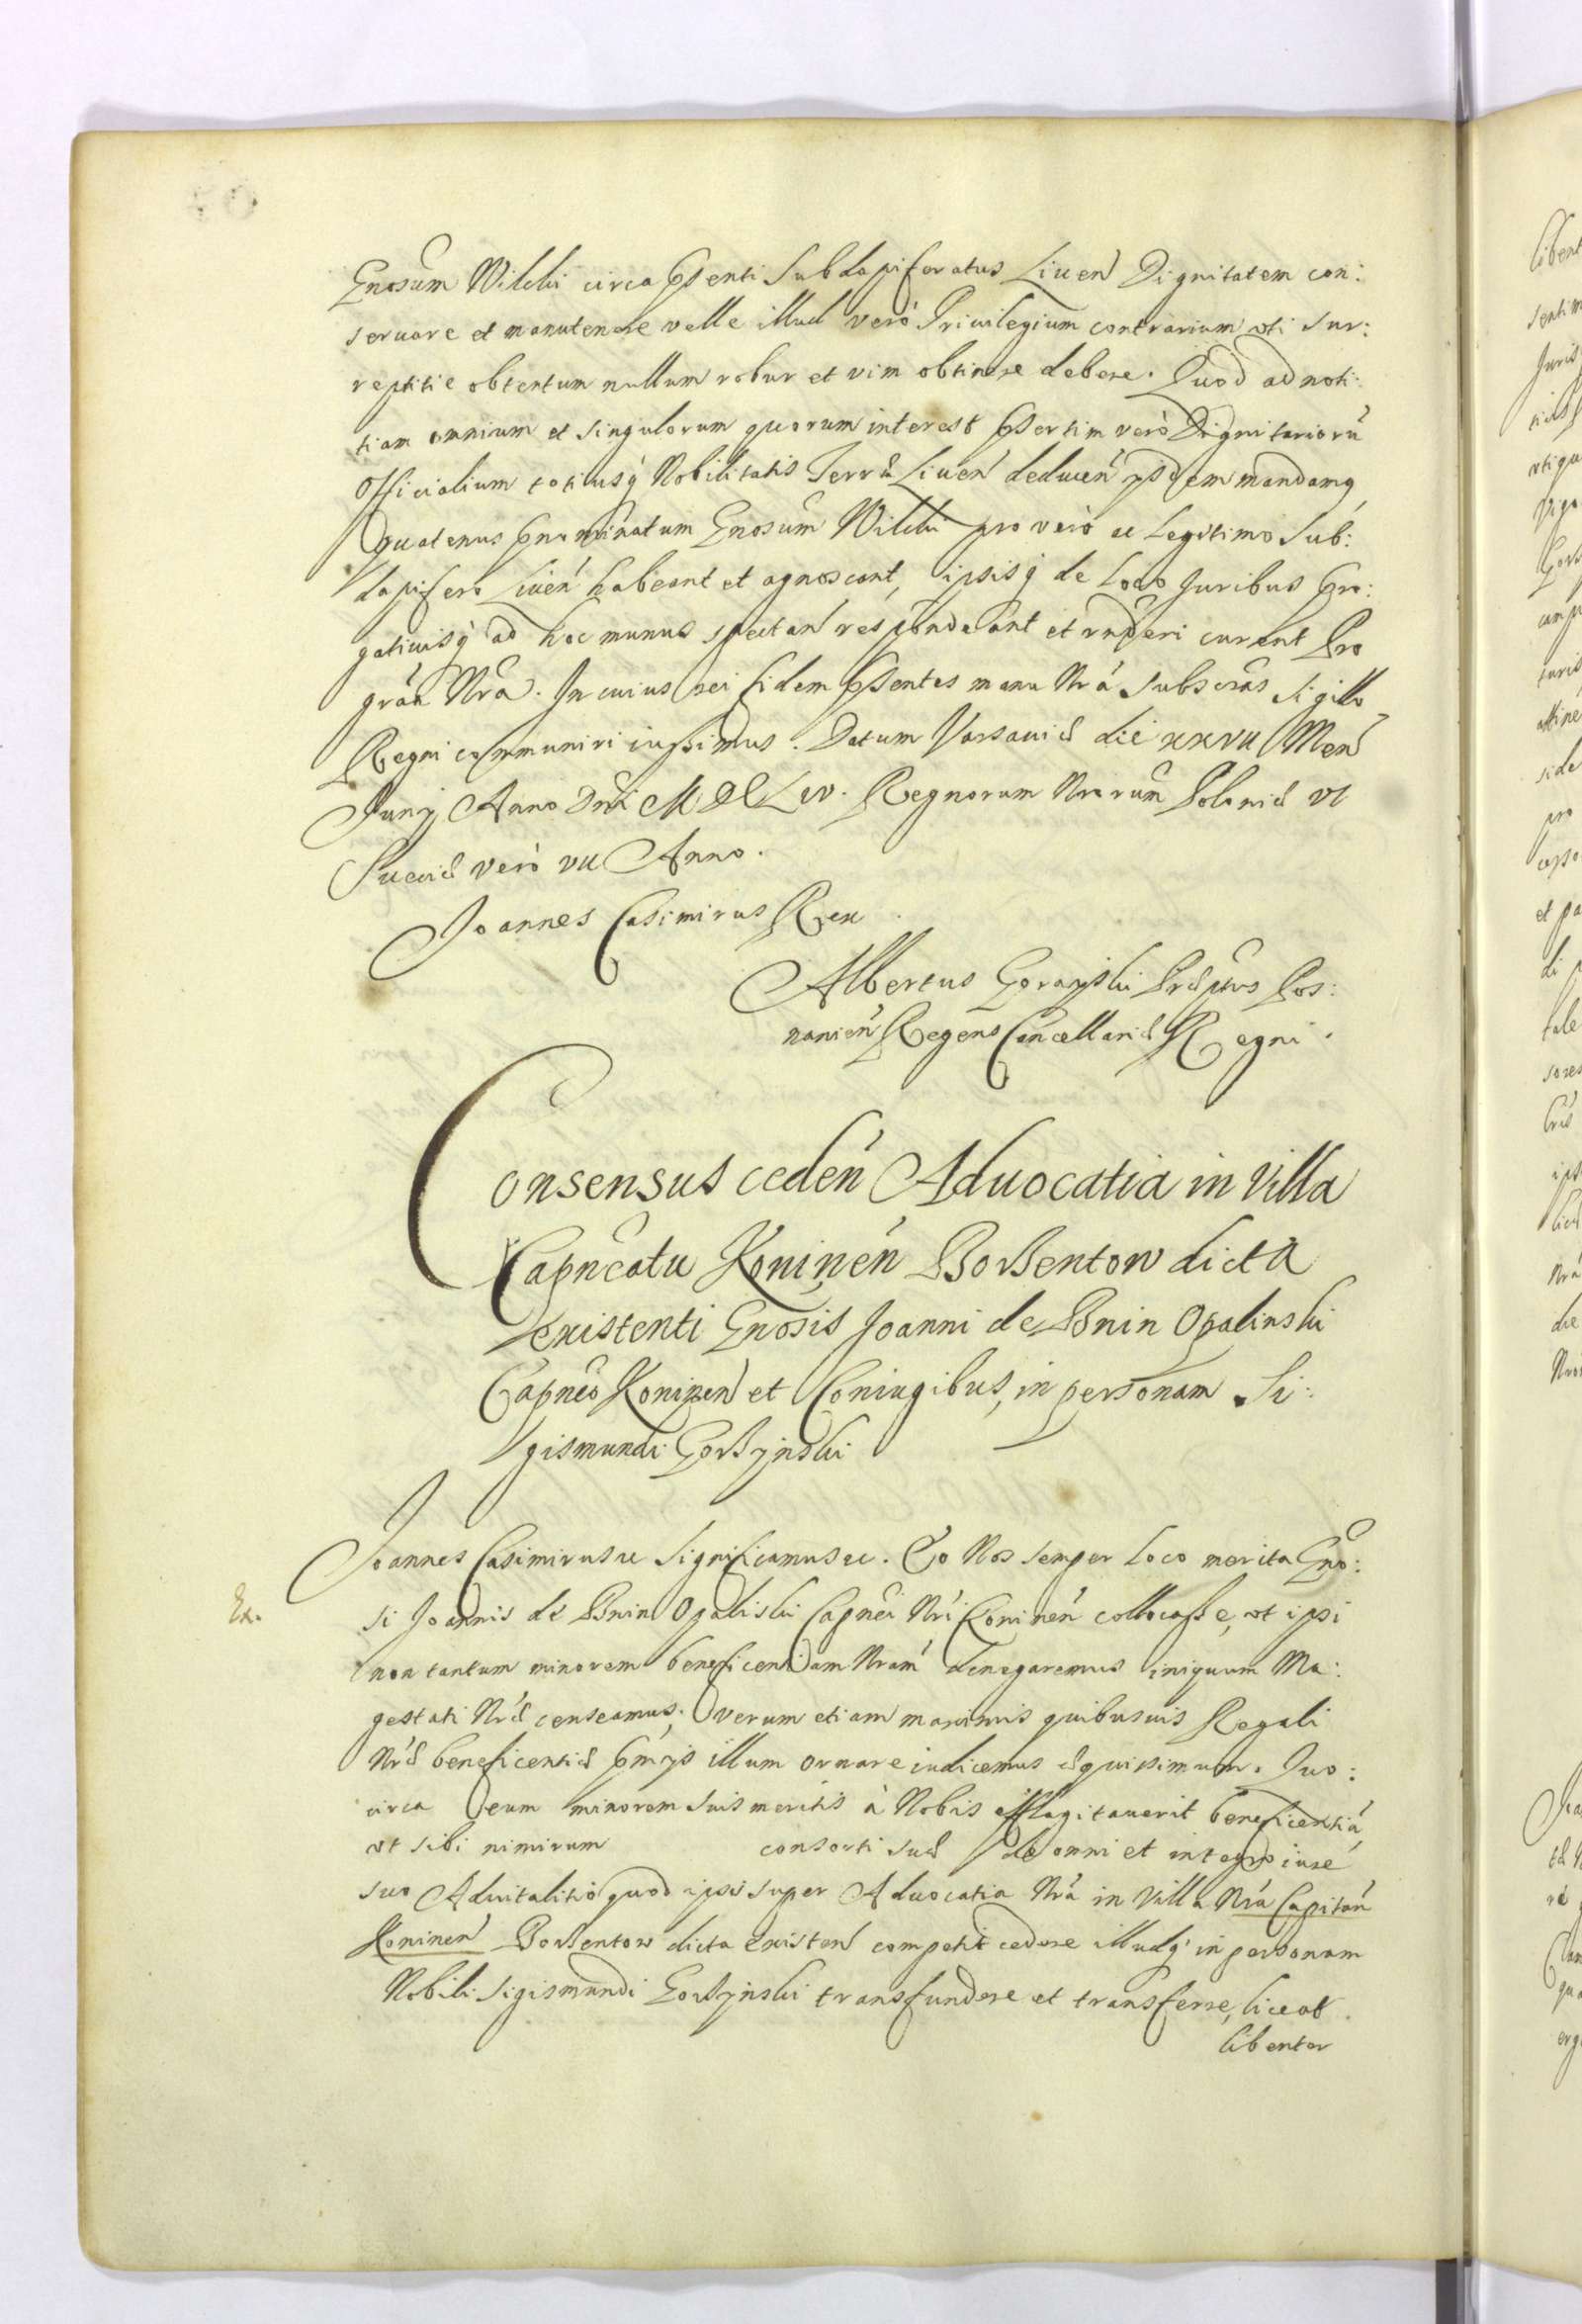 Gnosum Wilcki circa Pssenti Subdapiferatus Liuen Dignitatem con:
seruare et manutenere velle illud verò Priuilegium contrarium uti sur:
reptitie obtentum nullum robur et vim obtinere debere. Quod ad noti:
tiam omnium et singulorum quorum interest Pssertim verò Dignitariorũ
Officialium totiusq́ Nobilitatis Terræ Liuen deducen ysdem mandamq,
quatenus Pnominatum Gnosum Wilcki pro vero ac Legitimo Sub:
dapifero Liuen habeant et agnoscant, ipsisq́ de Loco Juribus Pro:
gatiuisq́ ad hoc munus spectan respondeant et rnderi curent Pro
grãa Nra. In cuius rei fidem Pssentes manu Nrá subscras Sigillo
Regni communiri iussimus. Datum Varsauiæ die XXVII Men
Junij Anno Dni MDCLIV. Regnorum Nrorum Poloniæ VI
Sueciæ verò VII Anno.
Joannes Casimirus Rex.
Albertus Gorayski Præptus Pos:
nanien Regens Cancellariæ Regni.
Consensus ceden Aduocatia in villa
Capncatu Koninen Borszentow dicta
existenti Gnosis Joanni de Bnin Opalinski
Capneo Koninen et Coniugibus, in personam Si:
gismundi Gorszynski
Joannes Casimirus etc Significamus etc. Eo Nos semper loco merita Gno:
Ex.
si Joannis de Bnin Opaliski Capnei Nri Koninen collocasse, ut ipsi
non tantum minorem beneficentiam Nram denegaremus iniquum Ma:
gestati Nræ censeamus; verum etiam maximis quibusuis Regali
Nræ beneficentiæ Pmys illum ornare iudicemus æquissimum. Quo:
circa eum minorem suis meritis à Nobis efflagitauerit beneficentiá,
ut sibi nimirum consorti suæ de omni et integro iure
suo Aduitalitio quod ipsis super Aduocatia Nrá in Villa Nra Capitan
Koninen Borszentow dicta existen competit cedere illudq́ in personam
Nobili Sigismundi Gorszynski transfundere et transferre, liceat.
libenter